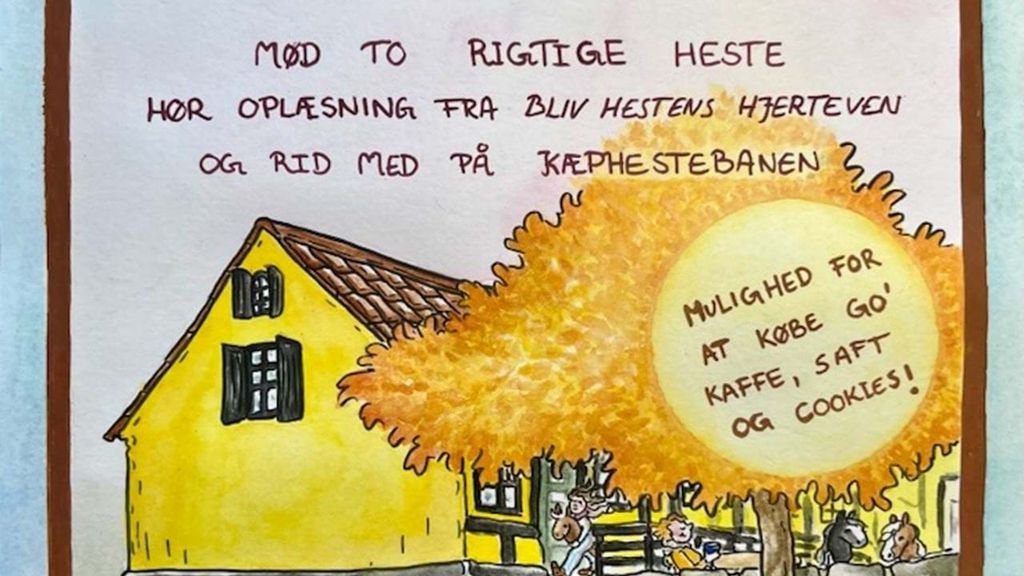 MØD TO RIGTIGE HESTE
HØR OPLÆSNING FRA BLIV HESTENS HJERTEVEN
OG RID MED PÅ KÆPHESTEBANEN
MULIGHED FOR
AT KØBE GO'
KAFFE, SAFT
OG COOKIES!